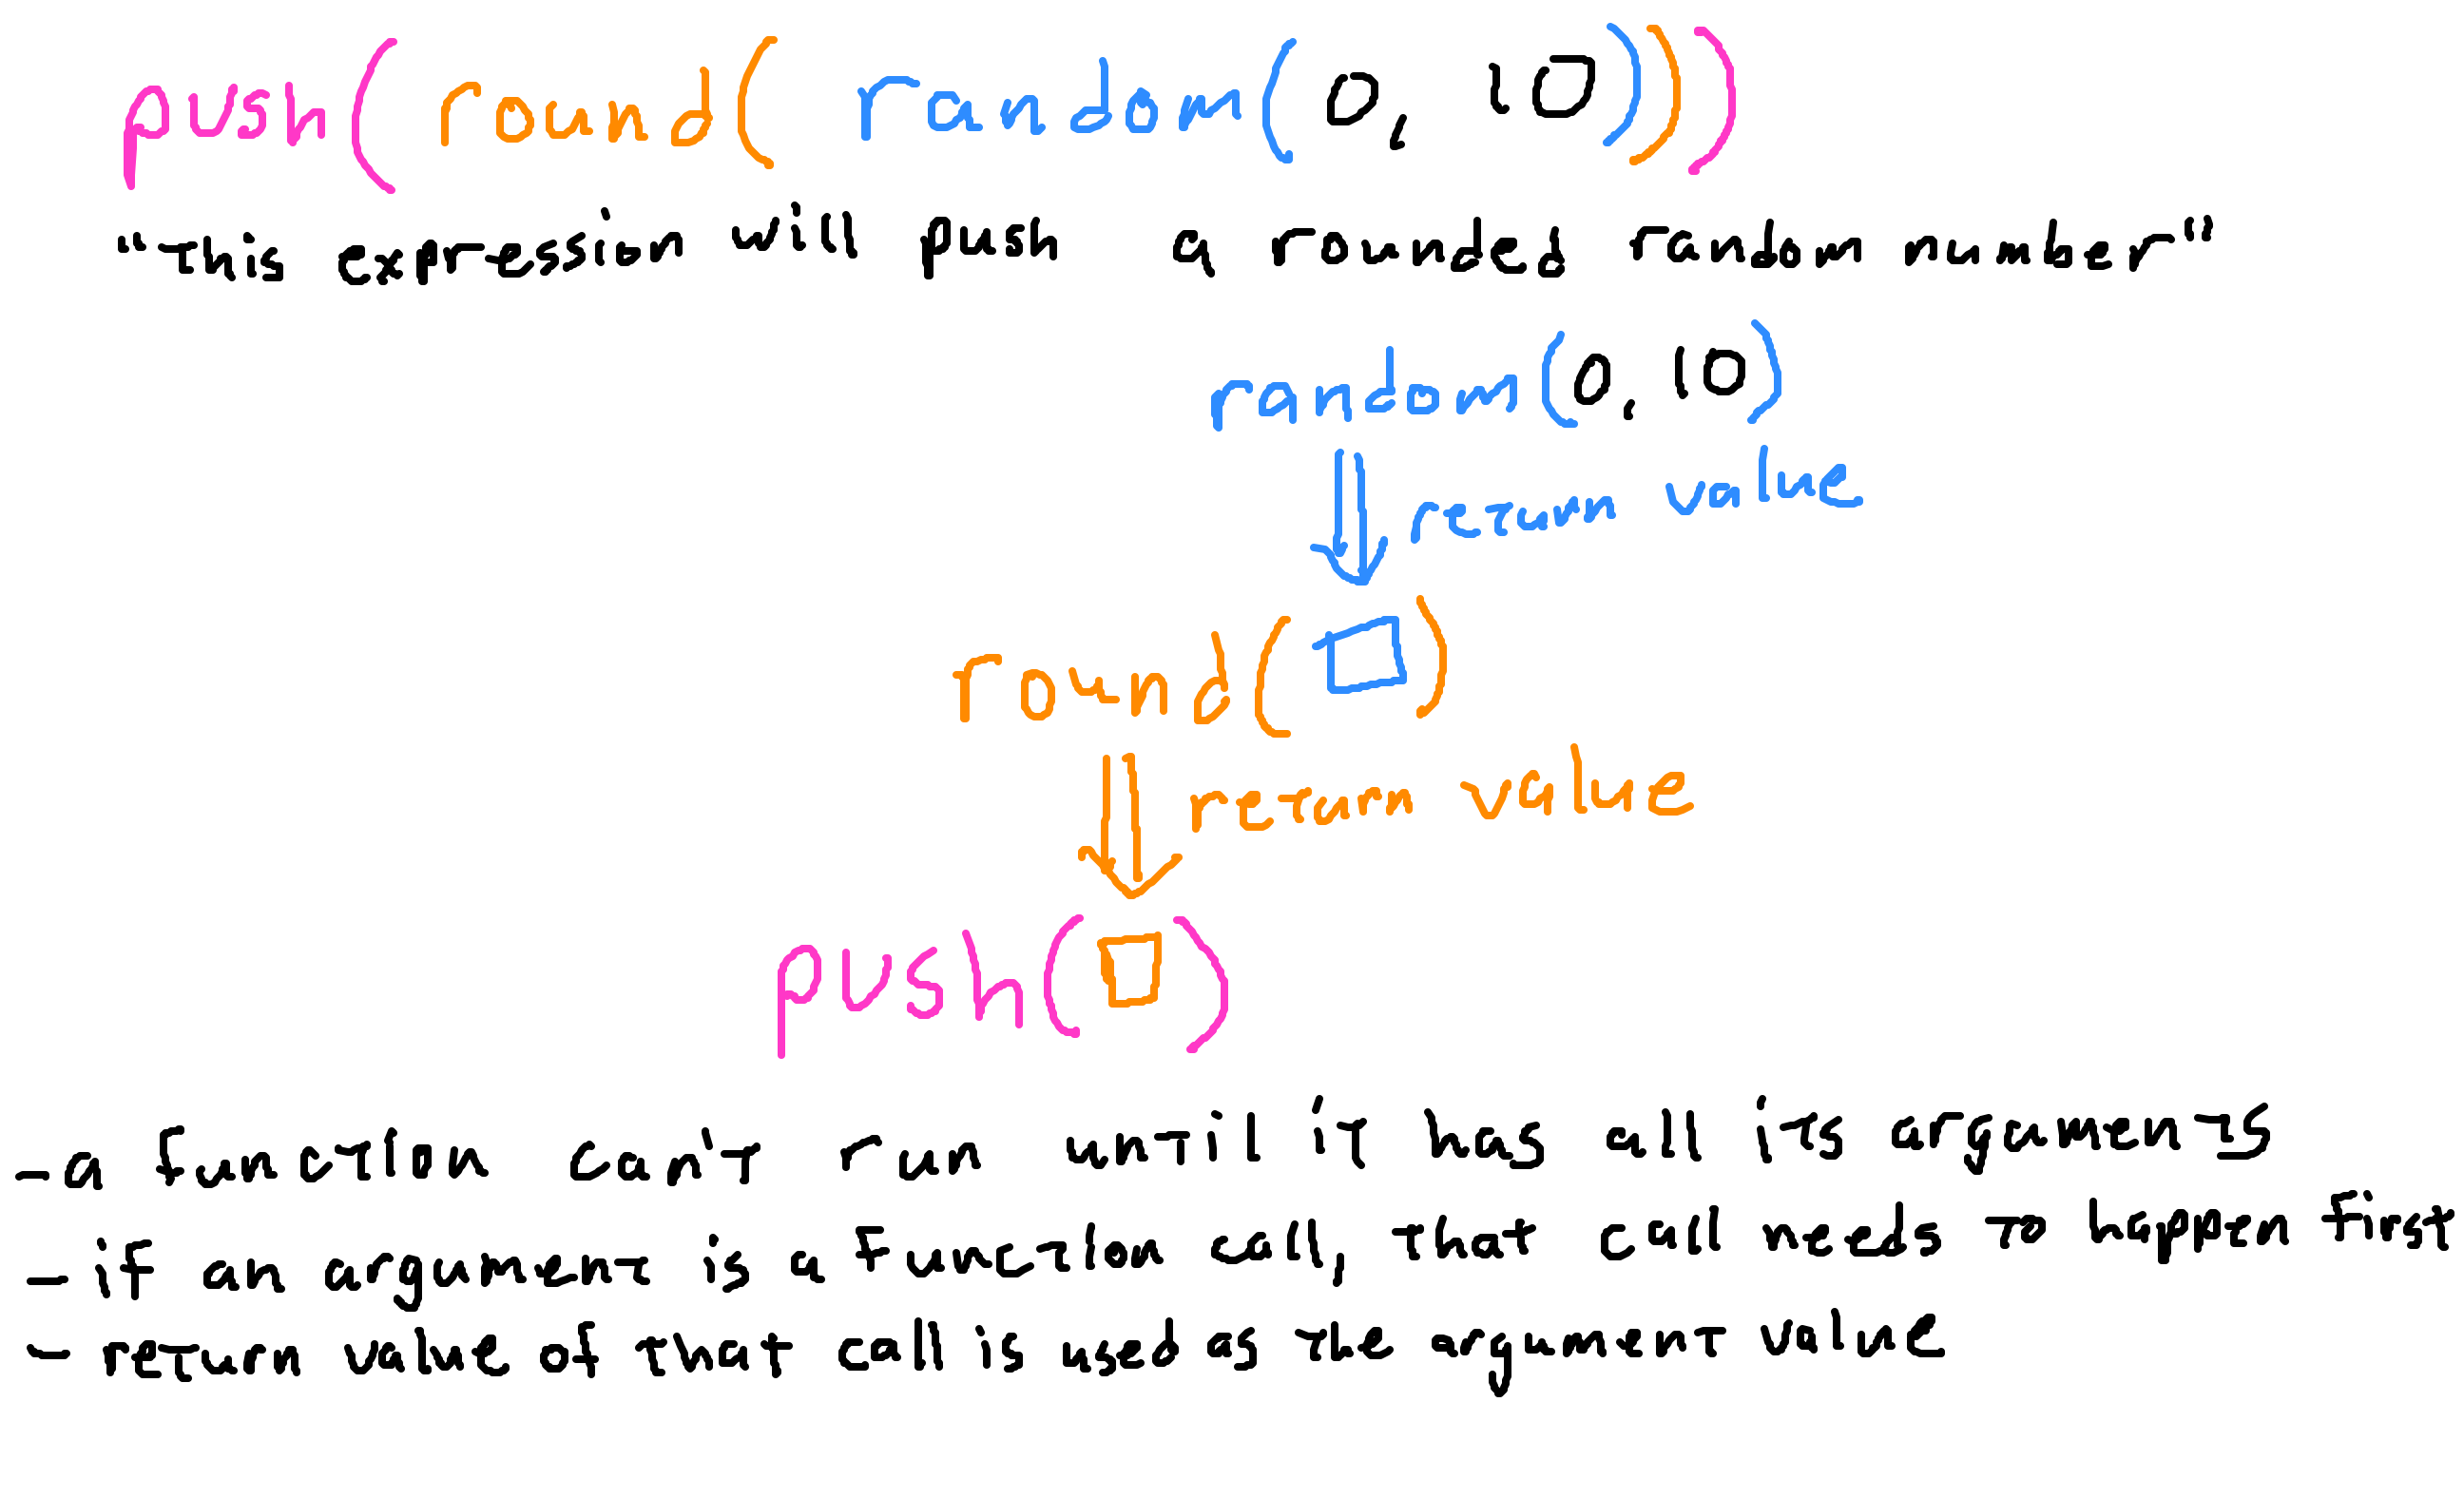 push(round( random(0, 10)))
"this expression will push a rounded random number"
random(0, 10)
return value
round( )
return value
push( )
- a function can't run until it has all its arguments
- if an argument is a function call, that call needs to happen first
- return value of that call is used as the argument value